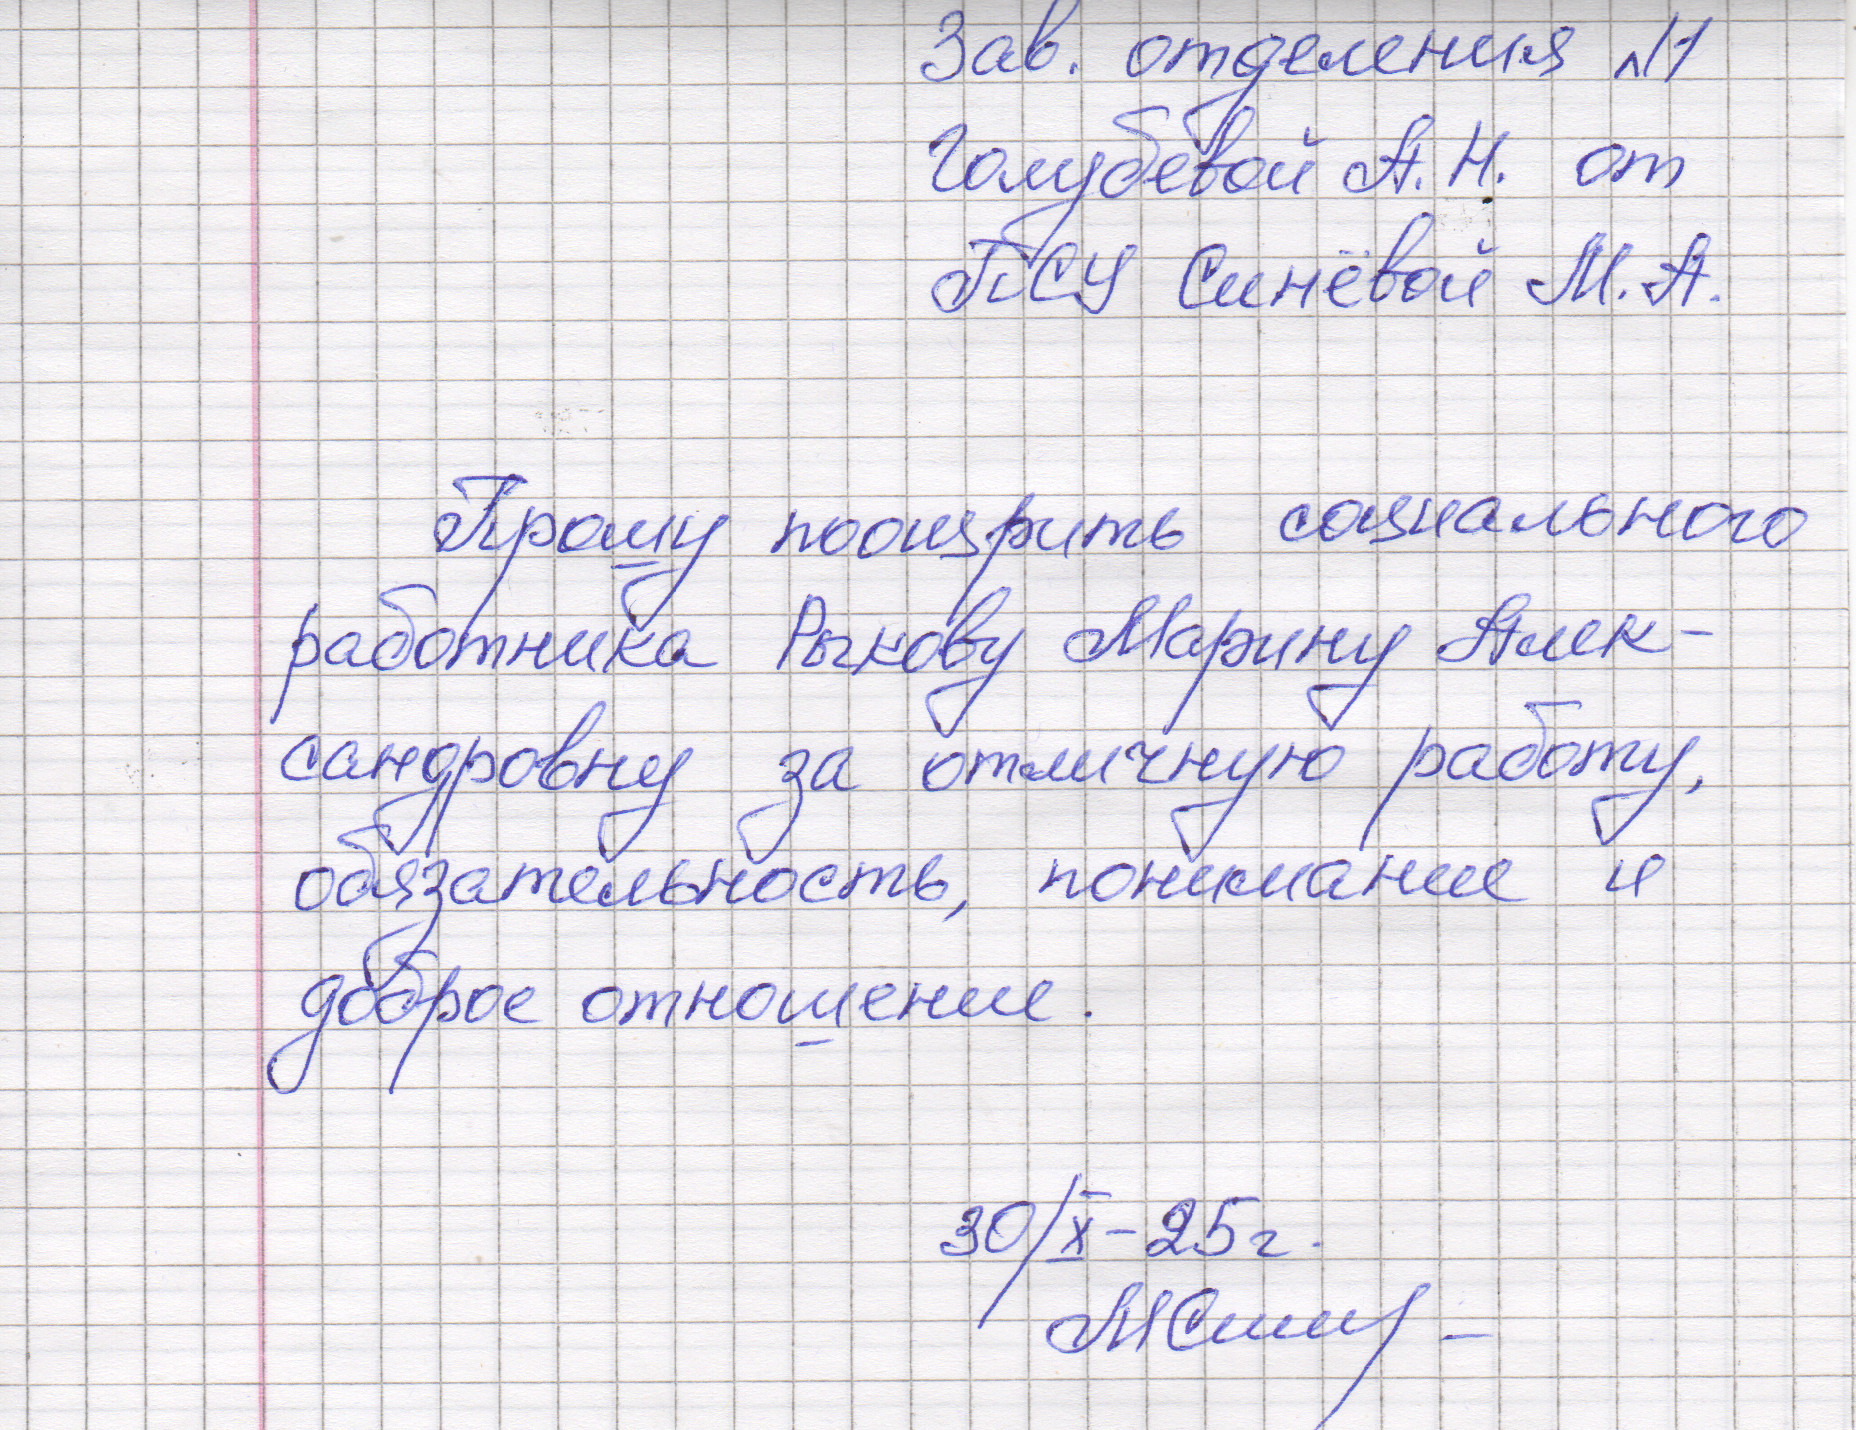 Зав. отделения №1
Голубевой А.Н. от
ПСУ Синёвой М.А.
Прошу поощрить социального
работника Рыкову Марину Алек-
сандровну за отличную работу,
обязательность, понимание и
доброе отношение.
30/X-25г.